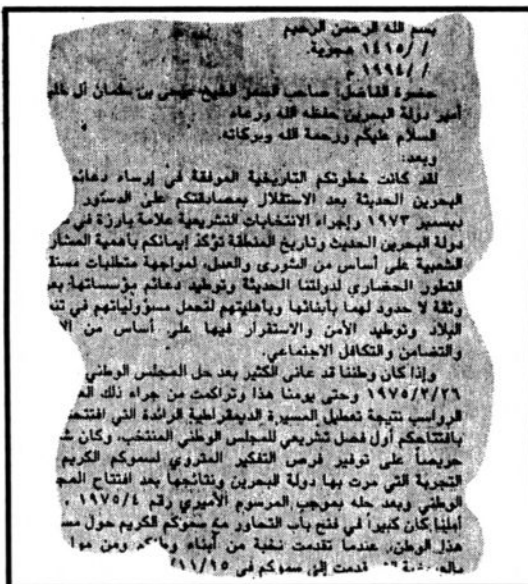 بسم الله الرحمن الرحيم
/ / ١٤١٥ هجرية
/ / ١٩٩٤ م
حضرة الفاضل صاحب السمو الشيخ عيسى بن سلمان آل
أمير دولة البحرين حفظه الله ورعاه
السلام عليكم ورحمة الله وبركاته
وبعد:
لقد كانت خطوتكم التاريخية الموفقة في إرساء
البحرين الحديثة بعد الاستقلال بمصادقتكم على الدستور
ديسمبر ١٩٧٣ وإجراء الانتخابات التشريعية علامة بارزة في
دولة البحرين الحديث وتاريخ المنطقة تؤكد إيمانكم بأهمية
الشعبية على أساس من الشورى والعدل، لمواجهة متطلبات
التطور الحضاري لدولتنا الحديثة وتوطيد دعائم مؤسساتها
وثقة لا حدود لها بأبنائها وبأهليتهم لتحمل مسؤولياتهم في
البلاد وتوطيد الأمن والاستقرار فيها على أساس من
والتضامن والتكافل الاجتماعي.
وإذا كان وطننا قد عانى الكثير بعد حل المجلس الوطني
وحتى يومنا هذا وتراكمت من جراء ذلك
الرواسب نتيجة تعطيل المسيرة الديمقراطية الرائدة التي
بافتتاحكم أول فصل تشريعي للمجلس الوطني المنتخب، وكان
حريصاً على توفير فرص التفكير المتروي لسموكم الكريم
التجربة التي مرت بها دولة البحرين ونتائجها بعد افتتاح
الوطني وبعد حله بموجب المرسوم الأميري رقم ١٩٧٥/٤
أملنا كان كبيراً في فتح باب التحاور مع سموكم الكريم حول
هذا الوطن، عندما تقدمت نخبة من أبناء
قدمت إلى سموكم في